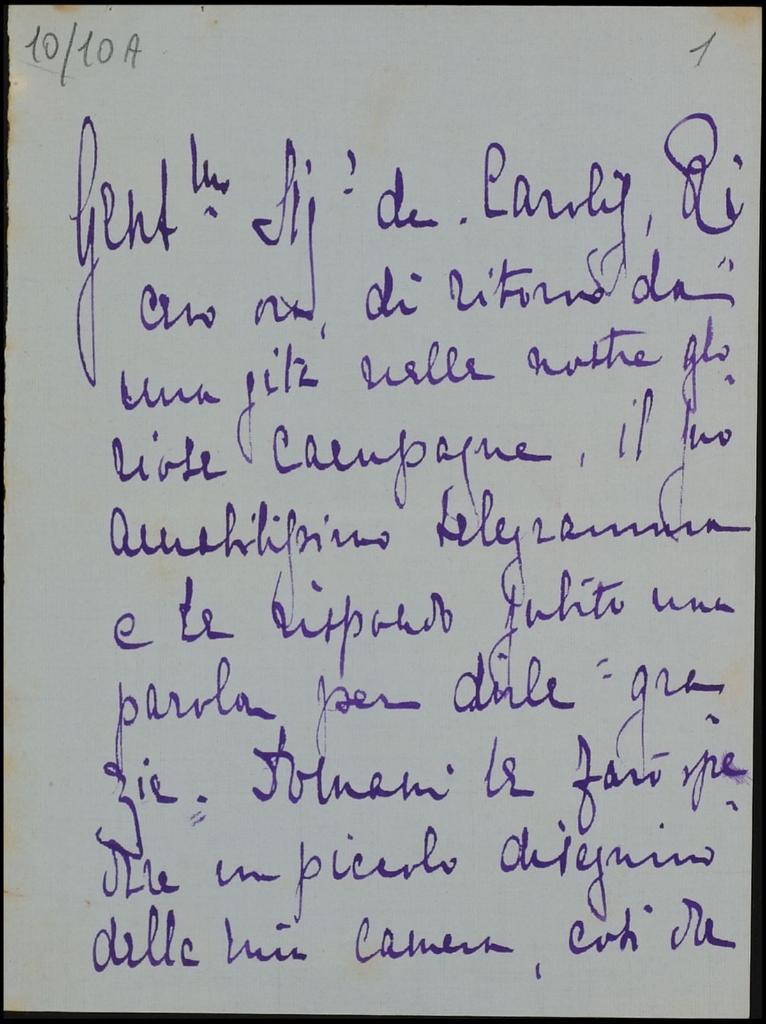 10/10A
1
Gent.mo Sig.r de Carolis, Ri
cevo ora, di ritorno da
una gita nelle nostre glo
riose campagne, il suo
amabilissimo telegramma
e le rispondo subito una
parola per dirle = gra
zie = Domani le farò spe
dire un piccolo disegnino
della mia camera, così che